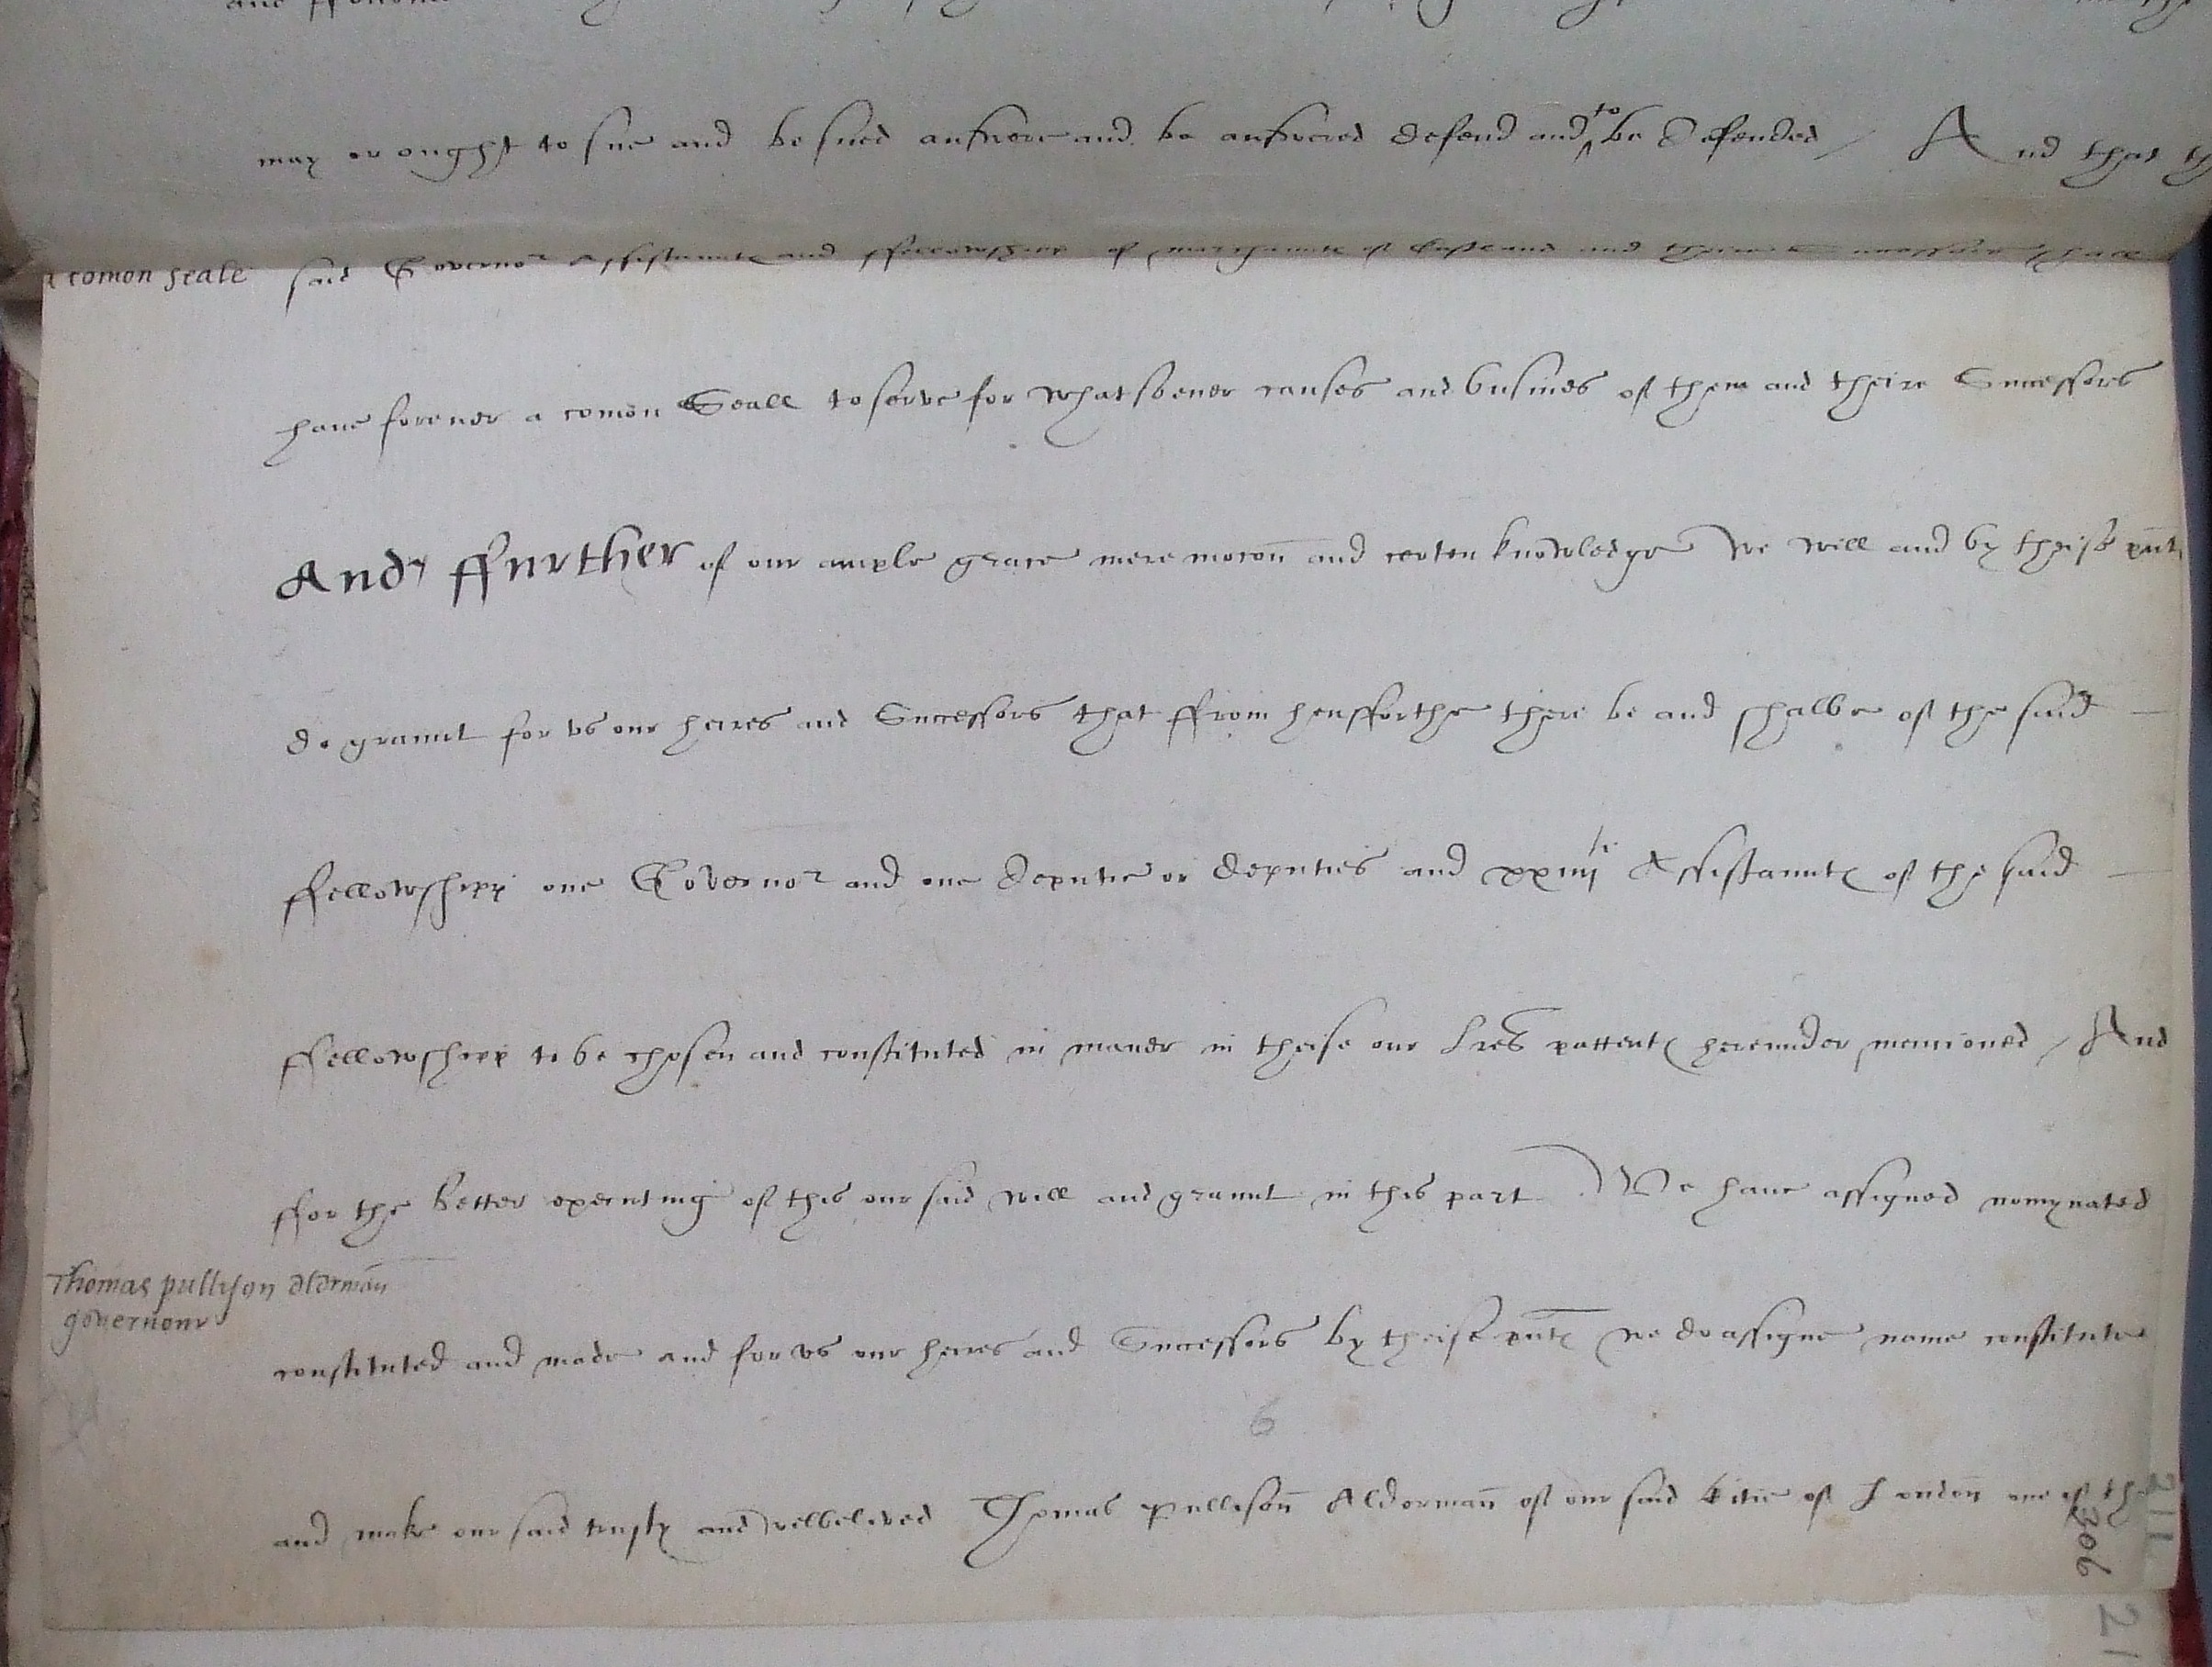 may or ought to sue and be sued answere and be answered defend and to be defended / And that th
A comon seale
said Governor Assistaunts and ffellowshipp of marchaunts of Eastland and theire successors shall
haue foreuer a comon Seall to serve for whatsoeuer causes and busines of them and theire Successors
And ffurther of our ample grace mere mocon and certen knowledge We will and by theise pnts
do graunt for vs our heires and Successors that ffrom hensfforthe there be and shalbe of the said
ffellowshipp one Governor and one Deputie or deputies and xxiiij Assistaunts of the said
ffellowshipp to be chosen and constituted in maner in theise our lres pattents hereunder mencioned / And
ffor the better executing of this our said will and graunt in this part We haue assigned nomynated
Thomas pullyson aldrman
governour
constituted and made and for vs our heires and Successors by theise pnts we do assigne name constitute
6
and make our said trusty and welbeloved Thomas Pullison Alderman of our said Citie of London one of th
211
306
21